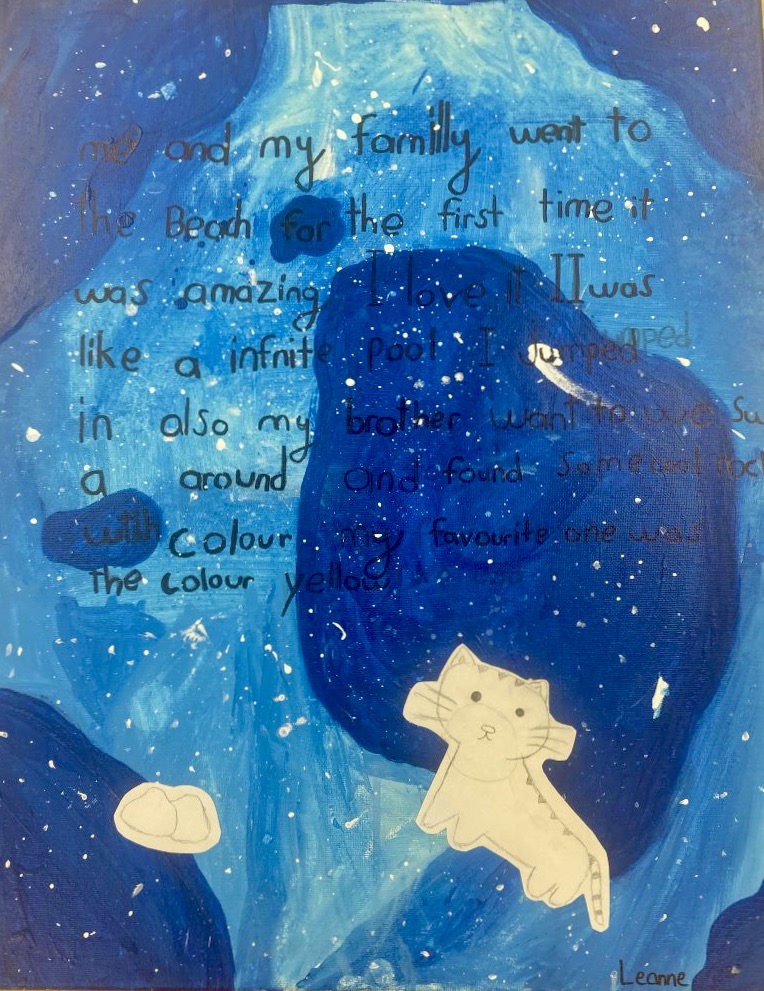 me and my familly went to
the Beach for the first time it
was amazing I love it II was
like a infnite pool I Jumped
in also my brother want to
a around and found some cool
with colour my favourite one was
the colour yellow
Leanne